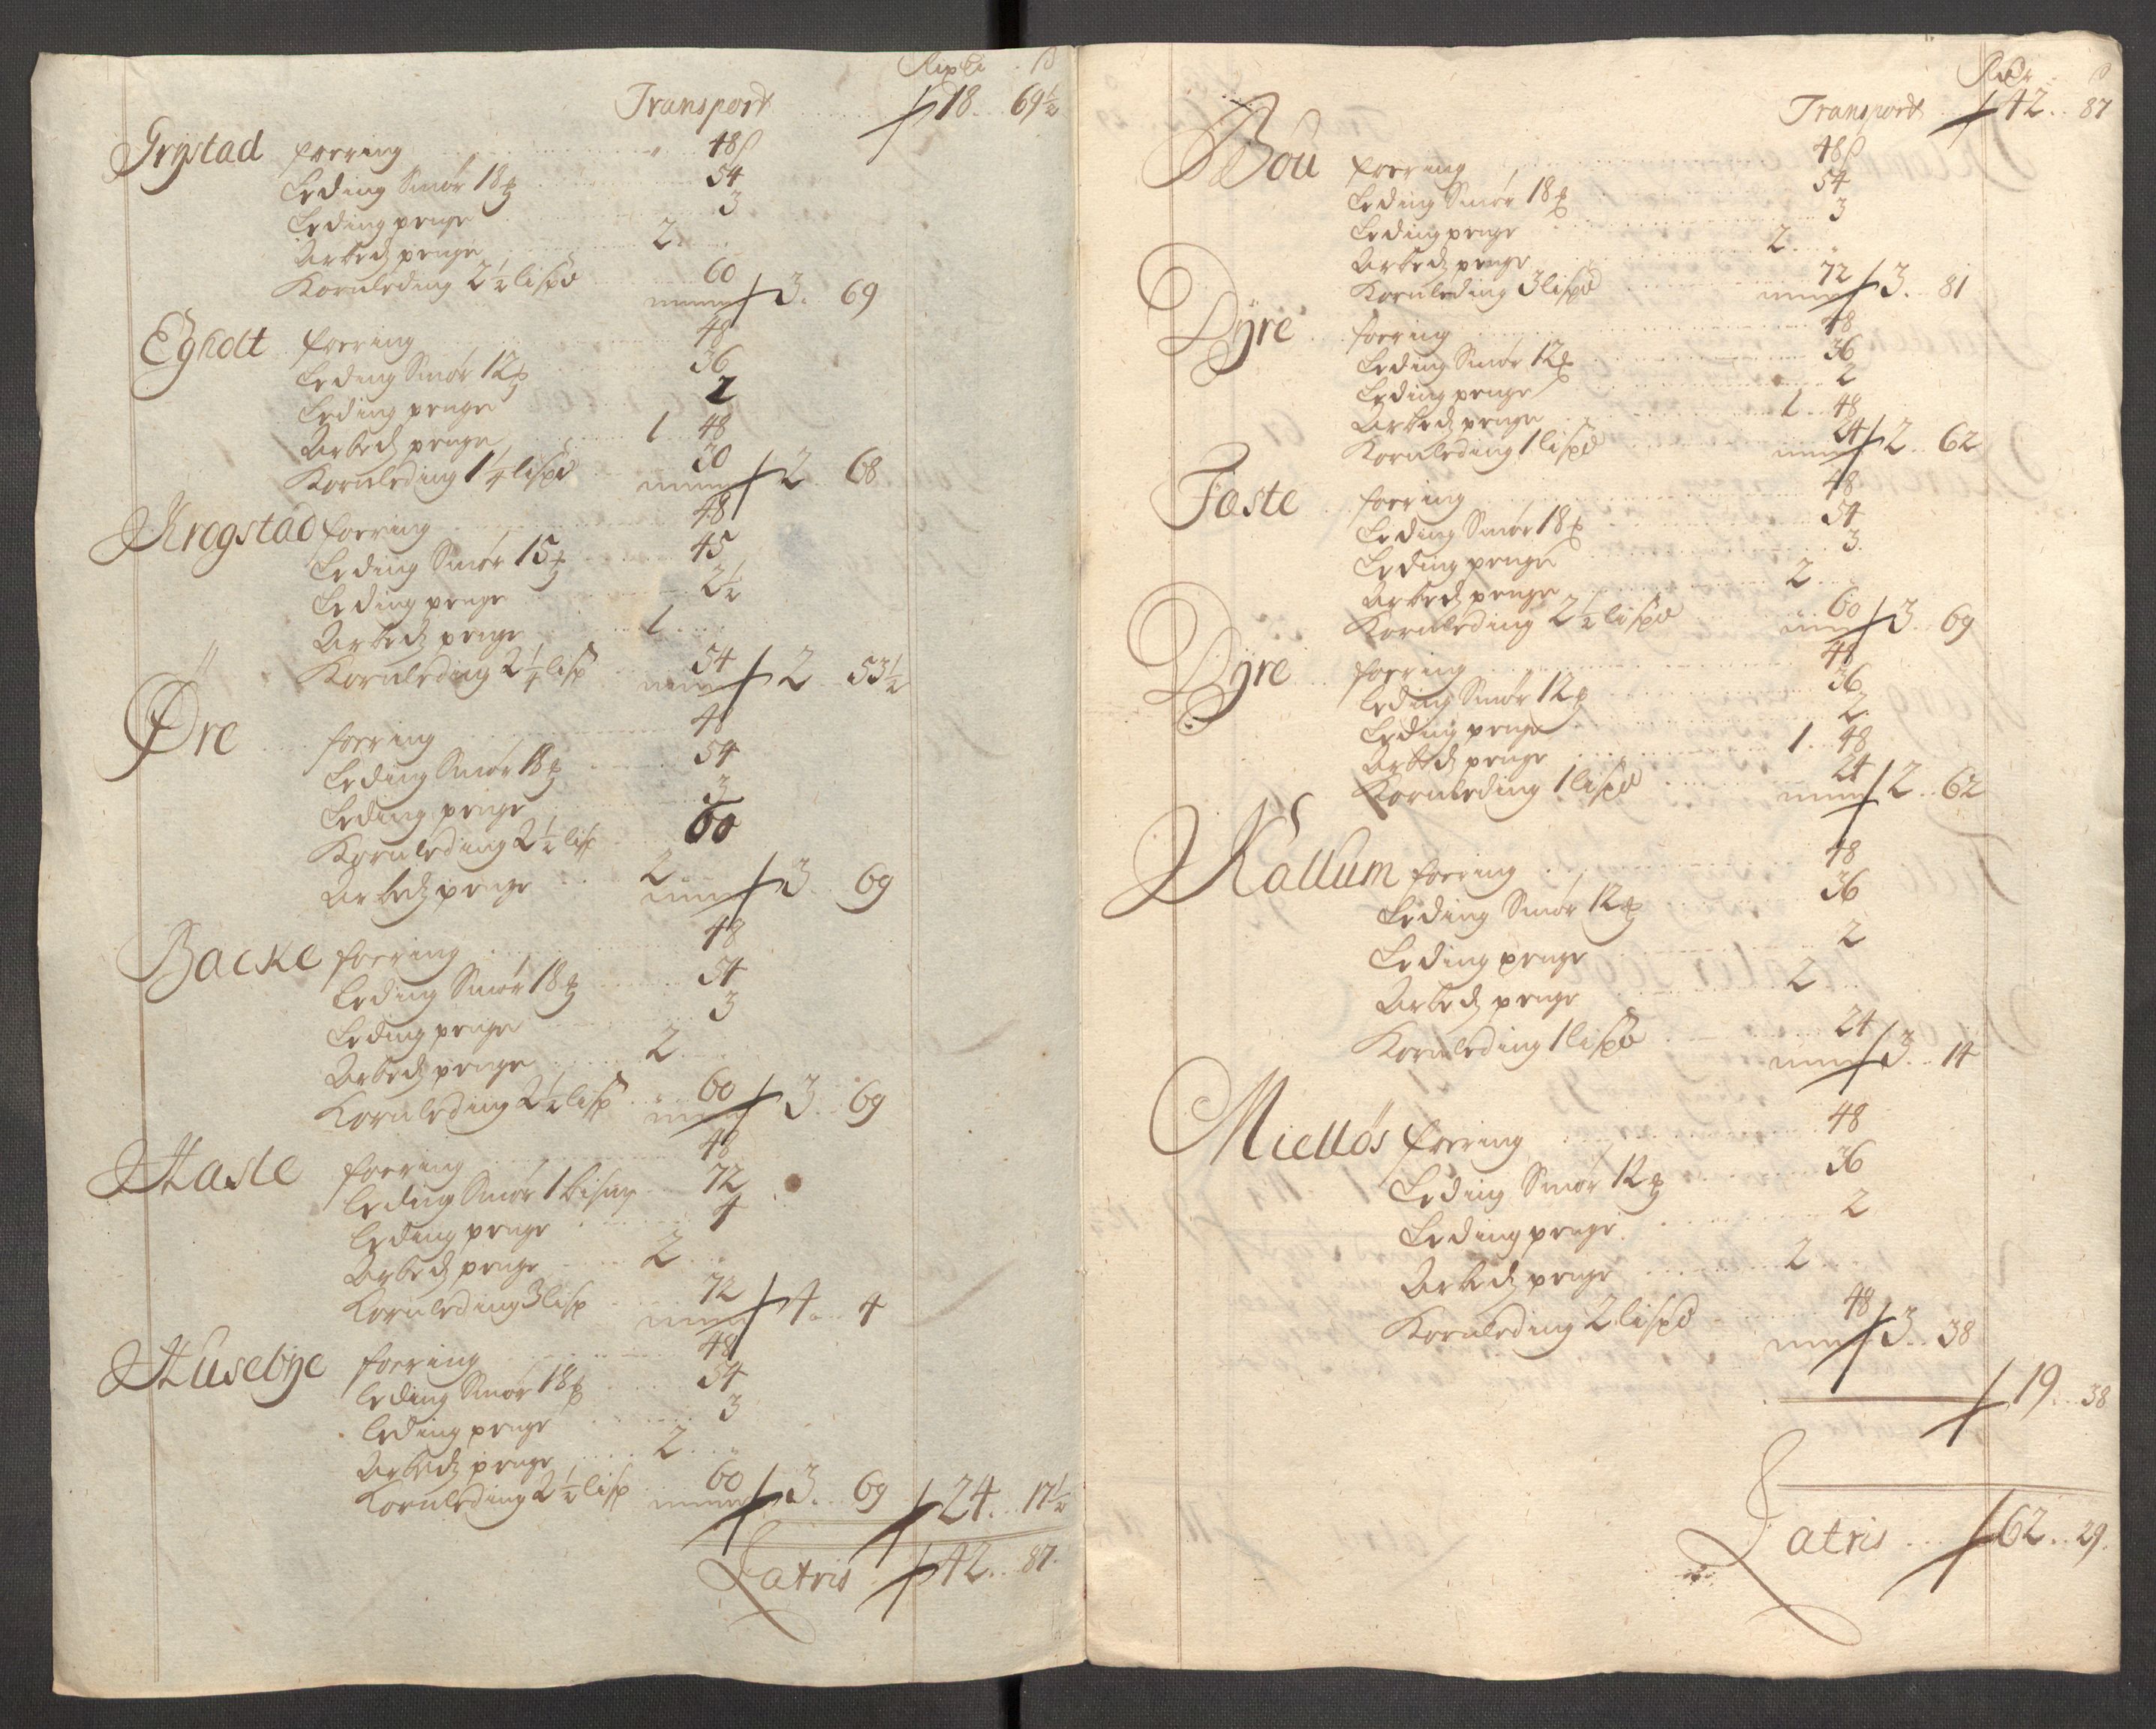 Rixdlr ß
Transport 18 69½
Grystad foering 48 ß
Leding Smør 18 ℔ 54
Leding penge 3
Arbeds penge 2
Kornleding 2½ lispd 60 3. 69
Egholt foering 48
Leding Smør 12 ℔ 36
Leding penge 2
Arbeds penge 1 48
Kornleding 1¼ lispd 30 2 68
Krogstad foering 48
Leding Smør 15 ℔ 45
Leding penge 2½
Arbeds penge 1
Kornleding 2¼ lisp 54 2 53½
Øre foering 48
Leding Smør 18 ℔ 54
Leding penge 3
Kornleding 2½ lisp 60
Arbeds penge 2 3 69
Backe foering 48
Leding Smør 18 ℔ 54
Leding penge 3
Arbeds penge 2
Kornleding 2½ lisp 60 3 69
Hasle foering 48
leding Smør 1 bismr 72
leding penge 4
Arbeds penge 2
Kornleding 3 lisp 72 4 4
Husebye foering 48
leding Smør 18 ℔ 54
leding penge 3
Arbeds penge 2
Kornleding 2½ lisp 60 3. 69 24 17½
Latris 42 87
Rdr ß
Transport 42 87
Bou foering 48 ß
Leding Smør 18 ℔ 54
Leding penge 3
Arbeds penge 2
Kornleding 3 lispd 72 3 81
Dyre foering 48
Leding Smør 12 ℔ 36
Leding penge 2
Arbeds penge 1 48
Kornleding 1 lispd 24 2 62
Foste foering 48
Leding Smør 18 ℔ 54
Leding penge 3
Arbeds penge 2
Kornleding 2½ lispd 60 3 69
Dyre foering 48
leding Smør 12 ℔ 36
Leding penge 2
Arbeds penge 1 48
Kornleding 1 lispd 24 2 62
Kallum foering 48
Leding Smør 12 ℔ 36
Leding penge 2
Arbeds penge 2
Kornleding 1 lispd 24 3 14
Mielløs foering 48
Leding Smør 12 ℔ 36
Leding penge 2
Arbeds penge 2
Kornleding 2 lispd 48 3 38
19 38
Latris 62 29